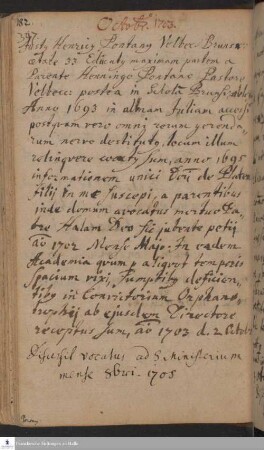 182.
Octobr. 1703.
Justy Henricy Fontany Velber-Brunsv.
ætate 33 Educaty maximam partem a
Parente Henningo Fontane Pastore
Velbecc. postea in Schola Brunsv.
Anno 1693 in almam Juliam accessi
postquam vero omni rerum gerenda-
rum nervo destituty, locum illum
relinquere coacty sum, anno 1695
informationem unici de
filij in me suscepi, a parentibus
inde domum avocatus mortuo Pa-
tre Halam Deo sic jubente petij
ao 1702 Mense Majo. In eadem
Academia quum p aliquot temporis
spatium vixi, sumptiby deficien-
tiby in Convictorium Orphano-
trophei ab ejusdem Directore
receptus sum, ao 1703 d. 2 Octobr.
Discessit vocatus ad S. Ministerium
mense 8bri. 1705